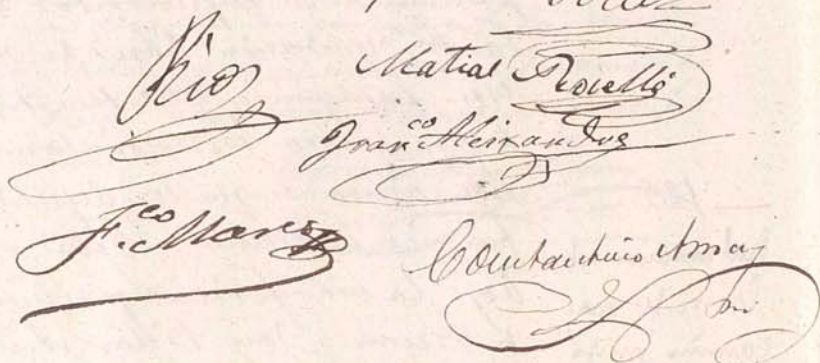 Rios
Matias Roselló
Fran.co Aleixandre
F.co Marco
Constantino Amay